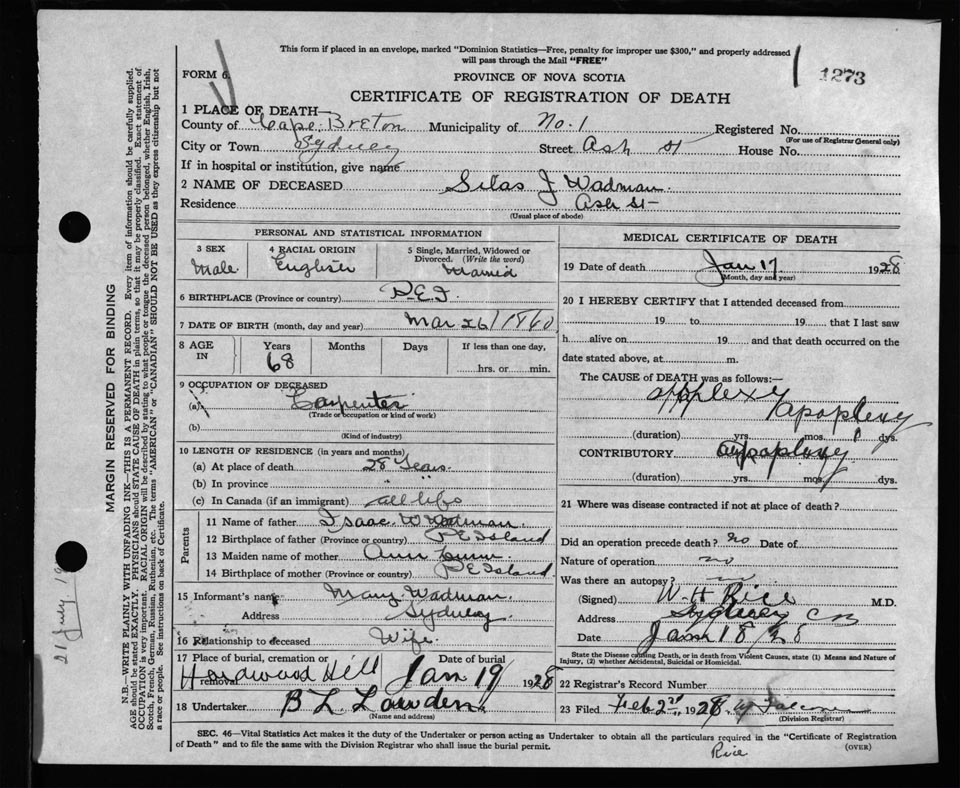 This form if placed in an envelope, marked "Dominion Statistics—Free, penalty for improper use $300," and properly addressed
will pass through the Mail "FREE"
FORM 6.
PROVINCE OF NOVA SCOTIA
1273
CERTIFICATE OF REGISTRATION OF DEATH
1 PLACE OF DEATH—
County of Cape Breton Municipality of No. 1 Registered No.
(For use of Registrar General only)
City or Town Sydney Street Ash St House No.
If in hospital or institution, give name
2 NAME OF DECEASED Silas J Wadman
Residence Ash St
(Usual place of abode)
PERSONAL AND STATISTICAL INFORMATION
3 SEX Male
4 RACIAL ORIGIN English
5 Single, Married, Widowed or Divorced. (Write the word) Married
6 BIRTHPLACE (Province or country) P.E.I.
7 DATE OF BIRTH (month, day and year) Mar 26/1860
8 AGE IN Years 68 Months Days If less than one day, hrs. or min.
9 OCCUPATION OF DECEASED
(a) Carpenter
(Trade or occupation or kind of work)
(b)
(Kind of industry)
10 LENGTH OF RESIDENCE (in years and months)
(a) At place of death 28 Years.
(b) In province " "
(c) In Canada (if an immigrant) all life
Parents
11 Name of father Isaac Wadman
12 Birthplace of father (Province or country) P E Island
13 Maiden name of mother Ann
14 Birthplace of mother (Province or country) P E Island
15 Informant's name Mary Wadman
Address Sydney
16 Relationship to deceased Wife
17 Place of burial, cremation or removal Hardwood Hill
Date of burial Jan 19 1928
18 Undertaker B L Lowden
(Name and address)
MEDICAL CERTIFICATE OF DEATH
19 Date of death Jan 17 1928
(Month, day and year)
20 I HEREBY CERTIFY that I attended deceased from
19 to 19 that I last saw
h alive on 19 and that death occurred on the
date stated above, at m.
The CAUSE of DEATH was as follows:—
applexy
apoplexy
(duration) yrs. mos. 1 dys.
CONTRIBUTORY apoplexy
(duration) yrs. mos. dys.
21 Where was disease contracted if not at place of death?
Did an operation precede death? no Date of
Nature of operation no
Was there an autopsy? no
(Signed) W. H Rice M.D.
Address Sydney C B
Date Jan 18/28
State the Disease causing Death, or in death from Violent Causes, state (1) Means and Nature of
Injury, (2) whether Accidental, Suicidal or Homicidal.
22 Registrar's Record Number
23 Filed Feb 2nd, 1928
(Division Registrar)
SEC. 46—Vital Statistics Act makes it the duty of the Undertaker or person acting as Undertaker to obtain all the particulars required in the "Certificate of Registration
of Death" and to file the same with the Division Registrar who shall issue the burial permit.
(OVER)
Rice
MARGIN RESERVED FOR BINDING
N.B.—WRITE PLAINLY WITH UNFADING INK—THIS IS A PERMANENT RECORD. Every item of information should be carefully supplied.
AGE should be stated EXACTLY. PHYSICIANS should STATE CAUSE OF DEATH in plain terms, so that it may be properly classified. Exact statement of
OCCUPATION is very important. RACIAL ORIGIN will be described by stating to what people or tongue the deceased person belonged, whether English, Irish,
Scotch, French, German, Russian, Ruthenian, etc. The terms "AMERICAN" or "CANADIAN" SHOULD NOT BE USED as they express citizenship but not
a race or people. See instructions on back of Certificate.